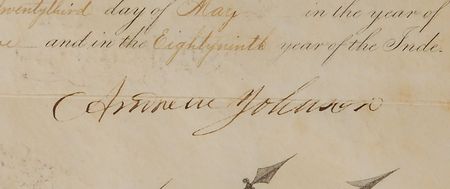 Twentythird day of May in the year of
and in the Eightyninth year of the Inde.
Andrew Johnson